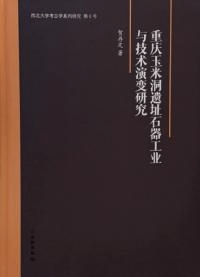 西北大学考古学系列研究 第6号
重庆玉米洞遗址石器工业
与技术演变研究
贺存定 著